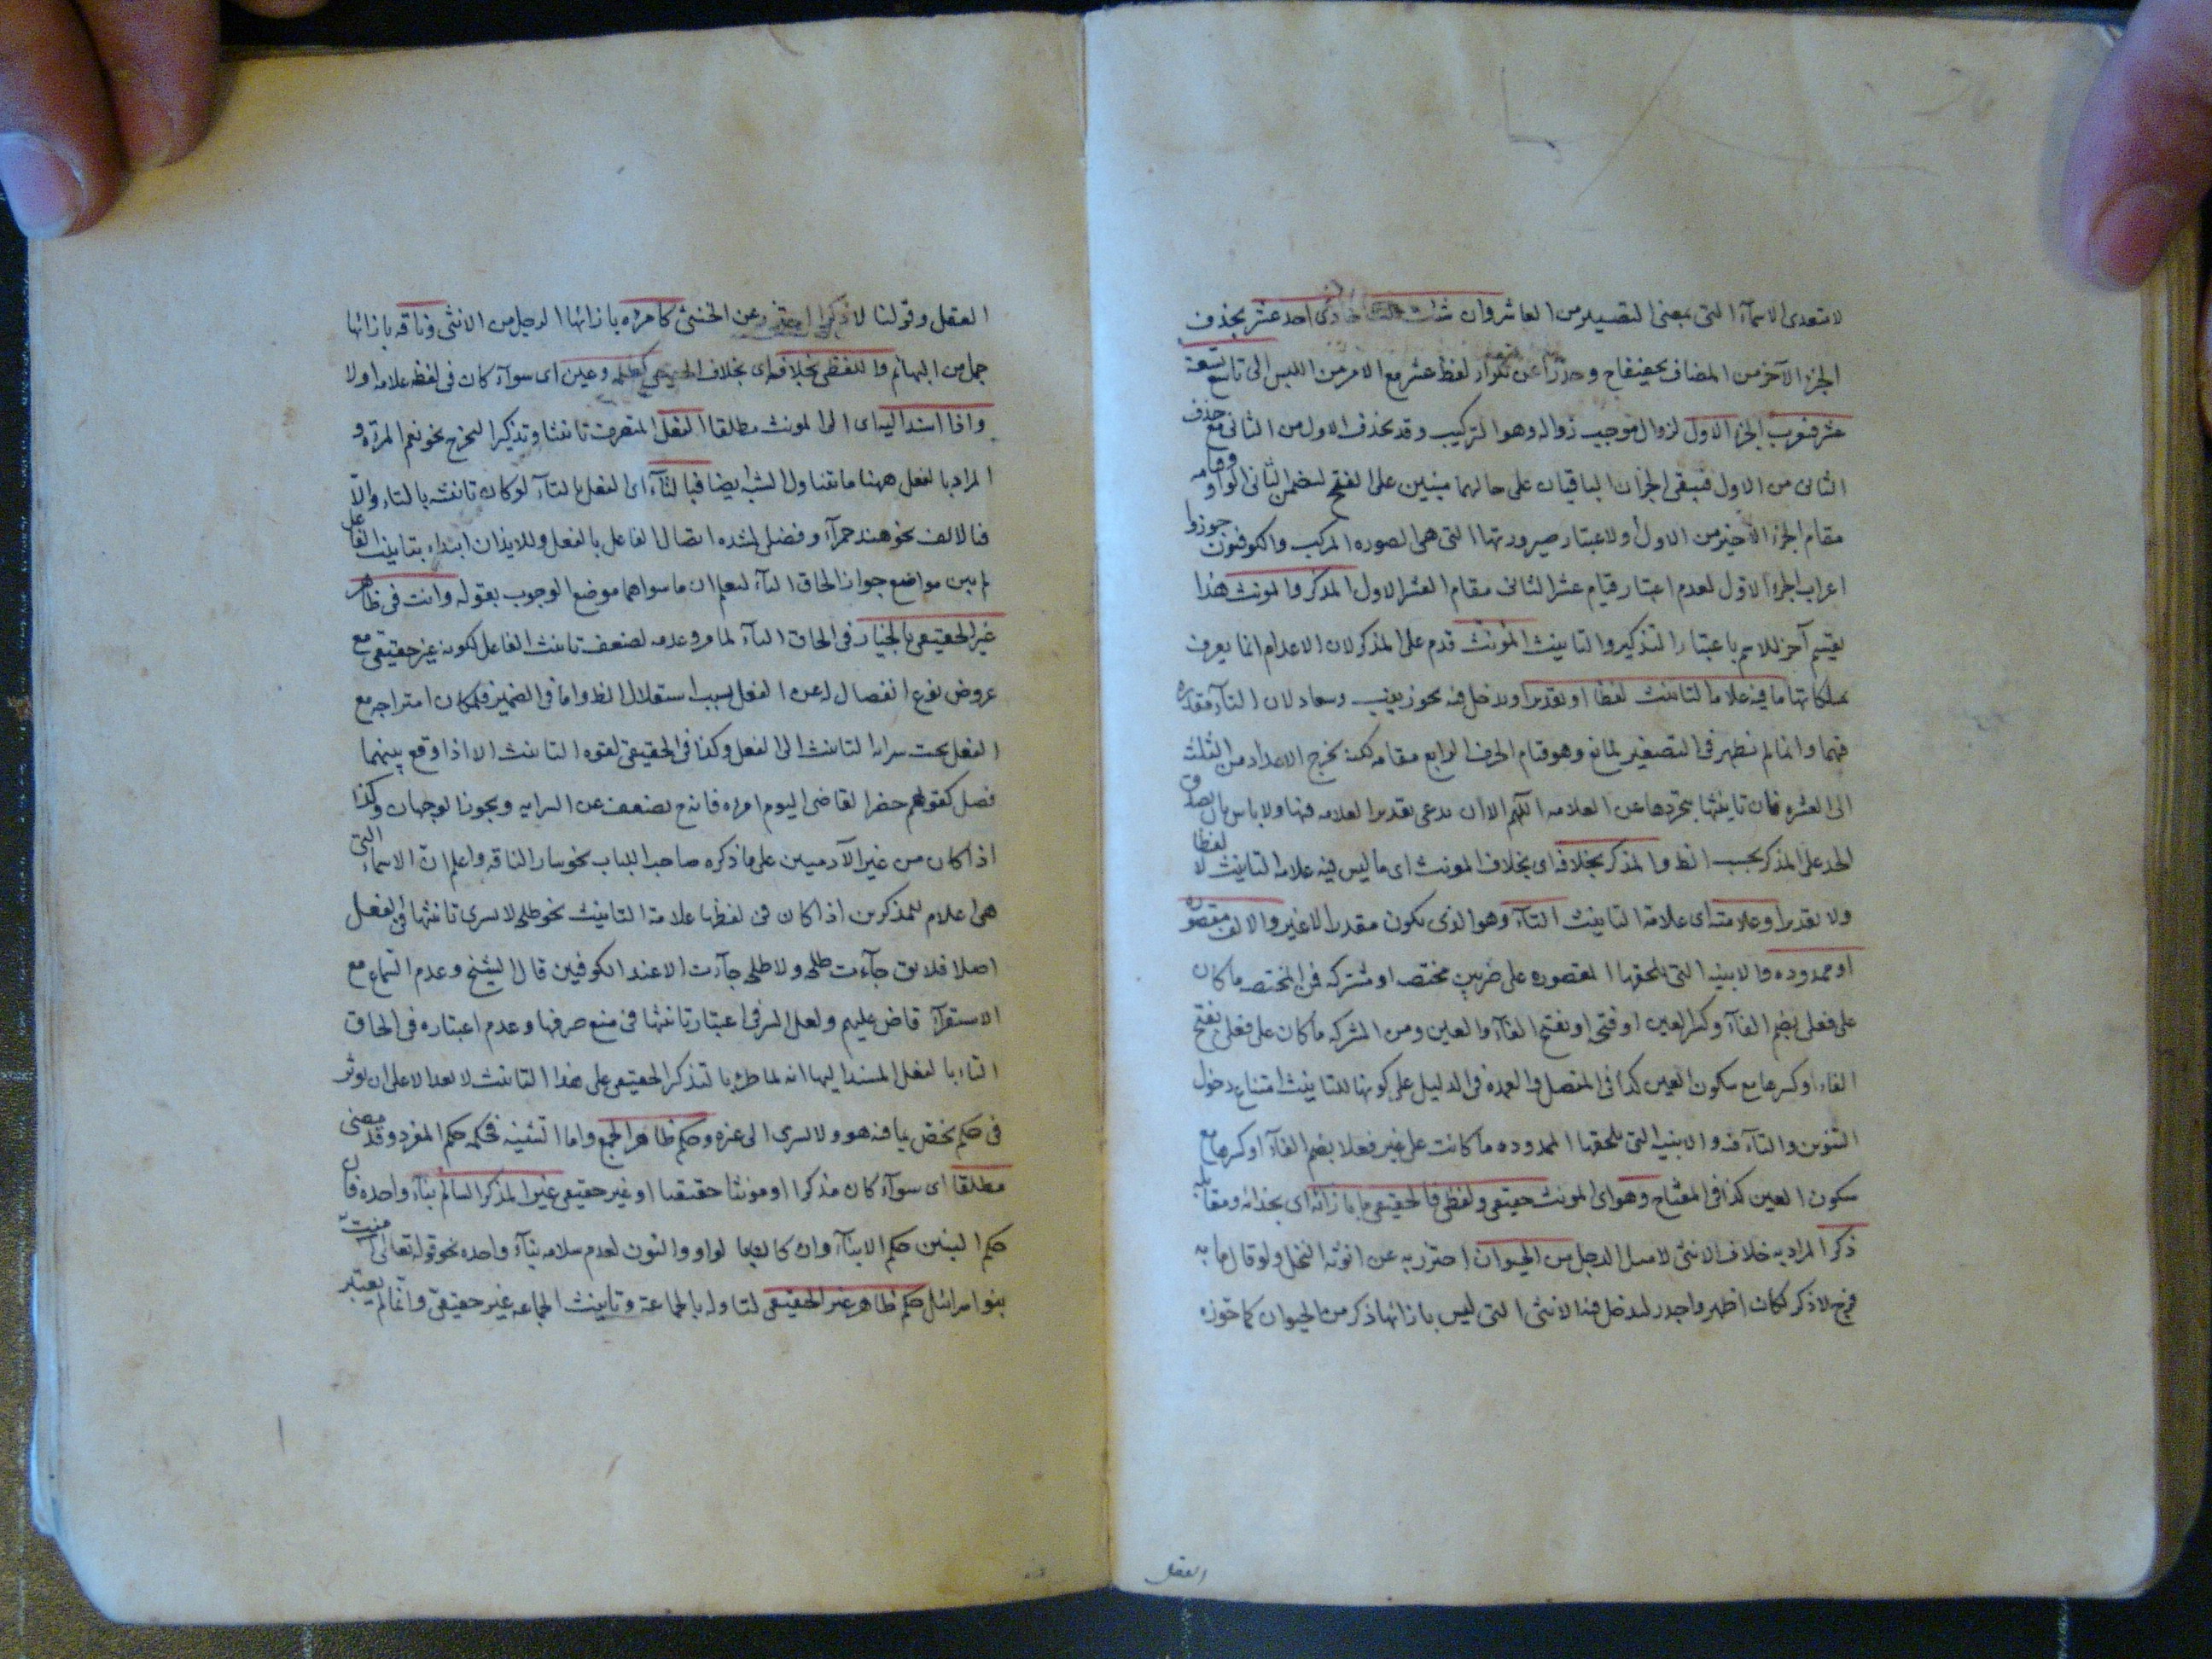 لا تتعدى الاسمآء التى بمعنى التصيير من العاشر وان شئت قلت حادى احد عشر بحذف
الجزء الآخر من المضاف تخفيفا وحذرا عن تكرار لفظ عشر مع الامن من اللبس الى تاسع تسعة
عشر فتعرب الجزء الاول لزوال موجب زواله وهو التركيب وقد يحذف الاول من الثانى مع حذف
الثانى من الاول فيبقى الجزءان الباقيان على حالهما مبنيين على الفتح لتضمن الثانى الواو وقيامه
مقام الجزء الاخير من الاول ولاعتبار صيرورتها التى هى لصوره المركب والكوفيون جوزوا
اعراب الجزء الاول لعدم اعتبار قيام عشر الثانى مقام العشر الاول المذكر والمونث هذا
تقسيم آخر للاسم باعتبار التذكير والتانيث المؤنث قدم على المذكر لان الاعدام انما يعرف
بملكاتها ما فيه علامة التانيث لفظا او تقديرا ويدخل فيه نحو زينب وسعاد لان التآء مقدره
فيهما وانما لم يظهر فى التصغير لمانع وهو قيام الحرف الرابع مقامه لكنه يخرج الاعداد من الثلثه
الى العشره فان تانيثها بتجردها عن العلامه اللهم الا ان يدعى تقدير العلامه فيها ولا باس بال صدق
الحد على المذكر بحسب الظ والمذكر بخلافه اى بخلاف المونث اى ما ليس فيه علامه التانيث لا لفظا
ولا تقديرا وعلامته اى علامة التانيث التآء وهو الذى يكون مقدرا لا غير والالف مقصوره
او ممدوده والابنيه التى تلحقها المقصوره على ضربين مختصه او مشتركه فمن المختصه ما كان
على فعلى بضم الفآء وكسر العين او فتحها او بفتح الفآء والعين ومن المشركه ما كان على فعلى بفتح
الفاء او كسرها مع سكون العين كذا فى المفصل والعمدة فى الدليل على كونها للتانيث امتناع دخول
التنوين والتآء فيه والابنيه التى تلحقها الممدوده ما كانت على غير فعلا بضم الفآء او كسرها مع
سكون العين كذا فى المفتاح وهو اى المونث حقيقى ولفظى فالحقيقى ما بازائه اى بحذائه ومقابله
ذكر المراد به خلاف الانثى لا مثل الرجل من الحيوان احترز به عن انوثه النخل ولو قال ما به
فرج لا ذكر لكان اظهر واجدر لتدخل فيه الانثى التى ليس بازائها ذكر من الحيوان كما جوزه
العقل
العقل وقولنا لا ذكر احترز عن الخنثى كامرءه بازائها الرجل من الانثى وناقه بازائها
جمل من البهائم واللفظى بخلافه اى بخلاف الحقيقى كظلمه وعين اى سوآء كان فى لفظه علامه اولا
واذا اسند اليه اى الى المونث مطلقا الفعل المتصرف تانيثا وتذكيرا ليخرج نحو نعم المرءه و
المراد بالفعل ههنا ما يتناول الشبه ايضا فبالتآء اى الفعل بالتآء لو كان تانيثه بالتاء والا
فالالف نحو هند حمرآء وفضلى لشده اتصال الفاعل بالفعل وللايذان ابتداء بتانيث الفاعل
ثم بين مواضع جواز الحاق التآء ليعلم ان ما سواهما موضع الوجوب بقوله وانت فى ظاهر
غير الحقيقى بالخيار فى الحاق التآء لما مر وعدمه لضعف تانيث الفاعل لكونه غير حقيقى مع
عروض نوع انفصال له عن الفعل بسبب استقلال الظ واما فى الضمير فلمكان امتزاجه مع
الفعل يجب سرايه التانيث الى الفعل وكذا فى الحقيقى لقوه التانيث الا اذا وقع بينهما
فصل كقولهم حضر القاضى اليوم امرءه فانه ح يضعف عن السرايه ويجوز الوجهان وكذا
اذا كان من غير الآدميين على ما ذكره صاحب اللباب نحو سار الناقه واعلم ان الاسماء التى
هى اعلام للمذكرين اذا كان فى لفظها علامة التانيث نحو طلحه لا يسرى تانيثها فى الفعل
اصلا فلا يق جآءت طلحه ولا طلحه جآءت الا عند الكوفيين قال الشيخ وعدم السماع مع
الاستقرآء قاض عليهم ولعل السر فى اعتبار تانيثها فى منع صرفها وعدم اعتباره فى الحاق
التاء بالفعل المسند اليها انه لما طرء بالتذكر الحقيقى على هذا التانيث لا يقدر الا على ان يوثر
فى حكم يختص بما فيه هو ولا يسرى الى غيره وحكم ظاهر الجمع واما التثنيه فحكمه حكم المفرد وقد مضى
مطلقا اى سوآء كان مذكرا او مونثا حقيقيا او غير حقيقى غير المذكر السالم بنآء واحده فان
حكم البنين حكم الابنآء وان كان بالواو والنون لعدم سلامه بنآء واحده نحو قوله تعالى آمنت
بنو اسرائيل حكم ظاهر غير الحقيقى لتاوله بالجماعة وتانيث الجماعه غير حقيقى وانما لم يعتبر